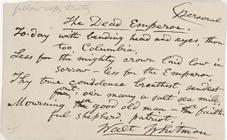 personal
The Dead Emperor.
To-day with bending head and eyes thou
too Columbia,
Less for the mighty crown laid low in
sorrow — less for the Emperor,
Thy true condolence breathest, sendest
out o'er many a salt sea mile,
Mourning a good old man — the faith-
ful shepherd, patriot.
Walt Whitman